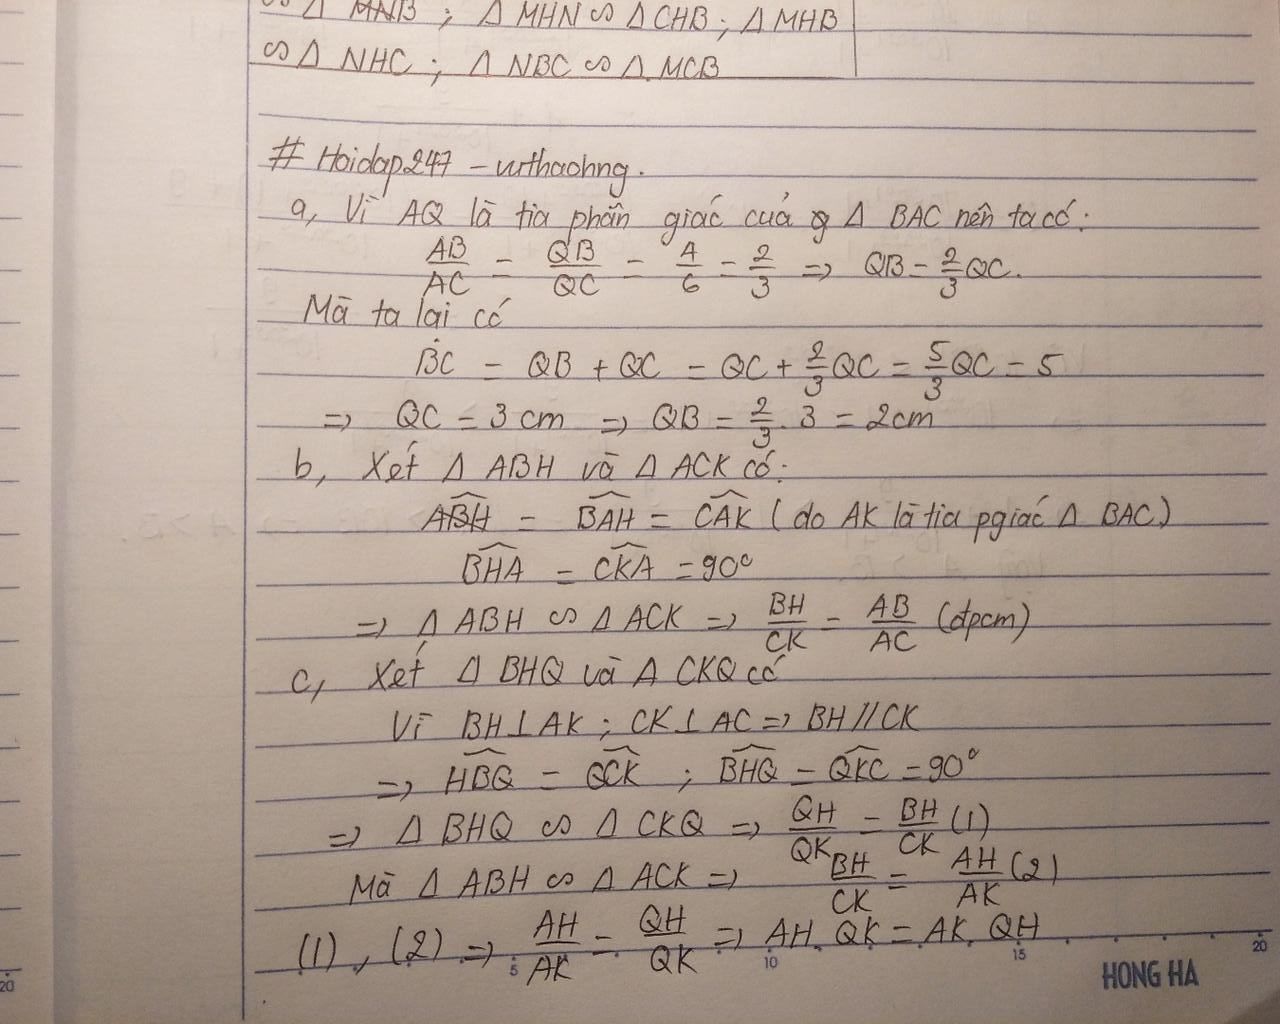 ∽ Δ MNB ; Δ MHN ∽ Δ CHB ; Δ MHB
∽ Δ NHC ; Δ NBC ∽ Δ MCB
# Hoidap247 – vuthaohng.
a, Vì AQ là tia phân giác của g Δ BAC nên ta có:
AB/AC = QB/QC = 4/6 = 2/3 => QB = 2/3 QC.
Mà ta lại có
BC = QB + QC = QC + 2/3 QC = 5/3 QC = 5
=> QC = 3 cm => QB = 2/3 . 3 = 2cm
b, Xét Δ ABH và Δ ACK có:
ABH = BAH = CAK ( do AK là tia pgiác Δ BAC)
BHA = CKA = 90°
=> Δ ABH ∽ Δ ACK => BH/CK = AB/AC (đpcm)
c, Xét Δ BHQ và Δ CKQ có
Vì BH ⊥ AK ; CK ⊥ AC => BH // CK
=> HBQ = QCK ; BHQ = QKC = 90°
=> Δ BHQ ∽ Δ CKQ => QH/QK = BH/CK (1)
Mà Δ ABH ∽ Δ ACK => BH/CK = AH/AK (2)
(1) , (2) => AH/AK = QH/QK => AH . QK = AK . QH
5 10 15 20
HONG HA
20